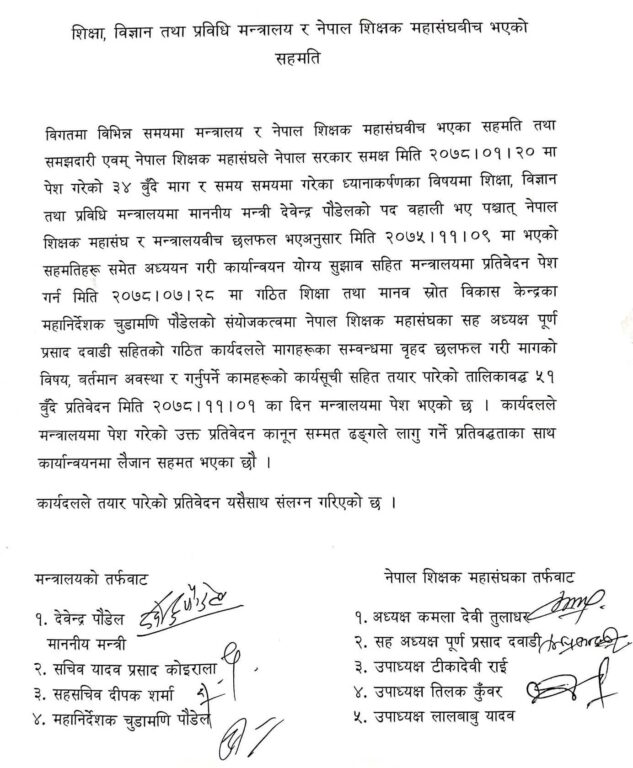 शिक्षा, विज्ञान तथा प्रविधि मन्त्रालय र नेपाल शिक्षक महासंघबीच भएको
सहमति
विगतमा विभिन्न समयमा मन्त्रालय र नेपाल शिक्षक महासंघवीच भएका सहमति तथा
समझदारी एवम् नेपाल शिक्षक महासंघले नेपाल सरकार समक्ष मिति २०७८।०१।२० मा
पेश गरेको ३४ बुँदे माग र समय समयमा गरेका ध्यानाकर्षणका विषयमा शिक्षा, विज्ञान
तथा प्रविधि मन्त्रालयमा माननीय मन्त्री देवेन्द्र पौडेलको पद वहाली भए पश्चात् नेपाल
शिक्षक महासंघ र मन्त्रालयवीच छलफल भएअनुसार मिति २०७५।११।०९ मा भएको
सहमतिहरू समेत अध्ययन गरी कार्यान्वयन योग्य सुझाव सहित मन्त्रालयमा प्रतिवेदन पेश
गर्न मिति २०७८।०७।२८ मा गठित शिक्षा तथा मानव स्रोत विकास केन्द्रका
महानिर्देशक चुडामणि पौडेलको संयोजकत्वमा नेपाल शिक्षक महासंघका सह अध्यक्ष पूर्ण
प्रसाद दवाडी सहितको गठित कार्यदलले मागहरूका सम्बन्धमा वृहद छलफल गरी मागको
विषय, वर्तमान अवस्था र गर्नुपर्ने कामहरूको कार्यसूची सहित तयार पारेको तालिकावद्ध ५१
बुँदे प्रतिवेदन मिति २०७८।११।०१ का दिन मन्त्रालयमा पेश भएको छ । कार्यदलले
मन्त्रालयमा पेश गरेको उक्त प्रतिवेदन कानून सम्मत ढङ्गले लागु गर्ने प्रतिवद्धताका साथ
कार्यान्वयनमा लैजान सहमत भएका छौ ।
कार्यदलले तयार पारेको प्रतिवेदन यसैसाथ संलग्न गरिएको छ ।
मन्त्रालयको तर्फवाट
१. देवेन्द्र पौडेल
माननीय मन्त्री
२. सचिव यादव प्रसाद कोइराला
३. सहसचिव दीपक शर्मा
४. महानिर्देशक चुडामणि पौडेल
नेपाल शिक्षक महासंघका तर्फवाट
१. अध्यक्ष कमला देवी तुलाधर
२. सह अध्यक्ष पूर्ण प्रसाद दवाडी
३. उपाध्यक्ष टीकादेवी राई
४. उपाध्यक्ष तिलक कुँवर
५. उपाध्यक्ष लालबाबु यादव